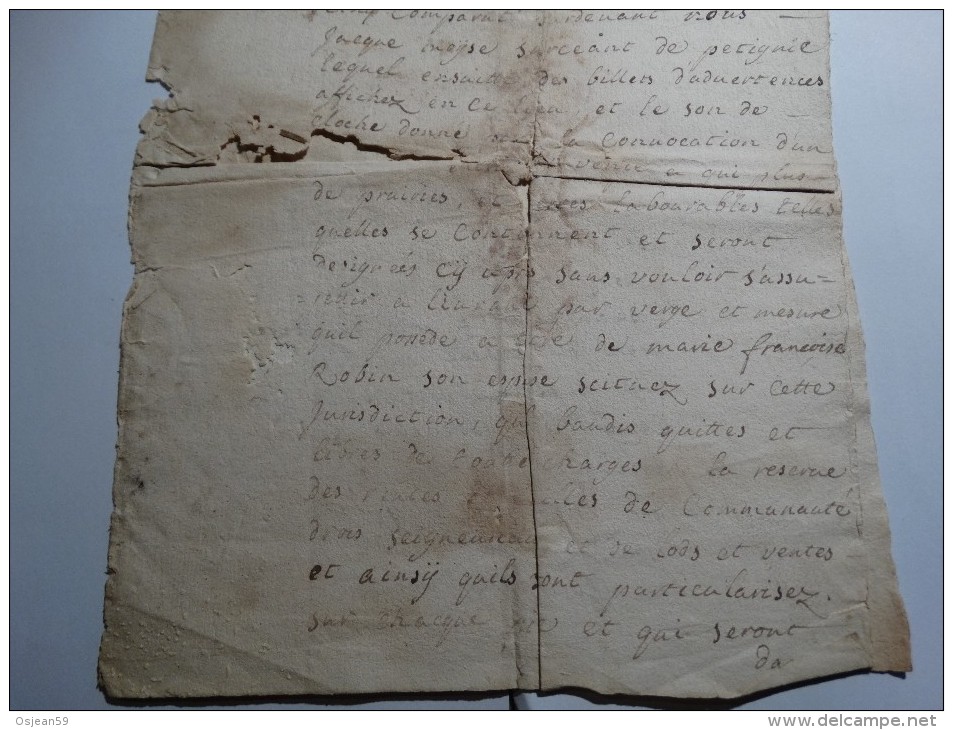 Comparut pardevant nous —
Jacque meyse surceant de petignie
lequel ensuitte des billets d'aduertences
affichez en ce lieu et le son de —
cloche donné la Convocation d'un
venu a qui plus
de prairies, et labourables telles
quelles se Contiennent et seront
designées Cÿ apres sans vouloir s'assu=
=jettir a par verge et mesure
quil possede a de marie francoise
Robin son espouse scituez sur Cette
Jurisdiction, quil baudis quittes et
libres de toutte charges la reserue
des rentes de Communauté
drois seigneuriau et de lods et ventes
et ainsÿ quils sont particularisez.
sur Chacque et qui seront
da
Osjean59
www.delcampe.net